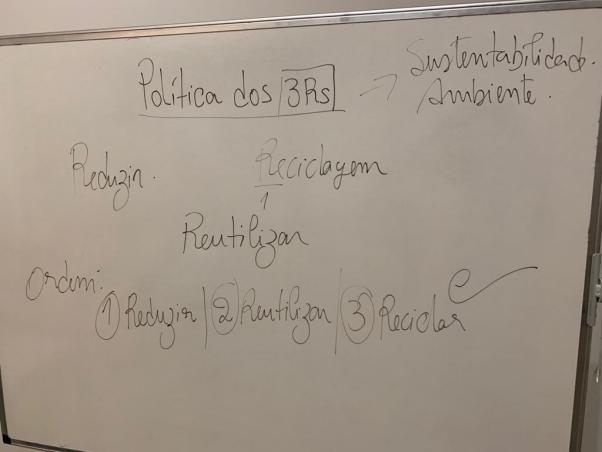 Política dos 3Rs → Sustentabilidade.
Ambiente.
Reduzir. Reciclagem
1
Reutilizar
Ordem:
① Reduzir | ② Reutilizar | ③ Reciclar